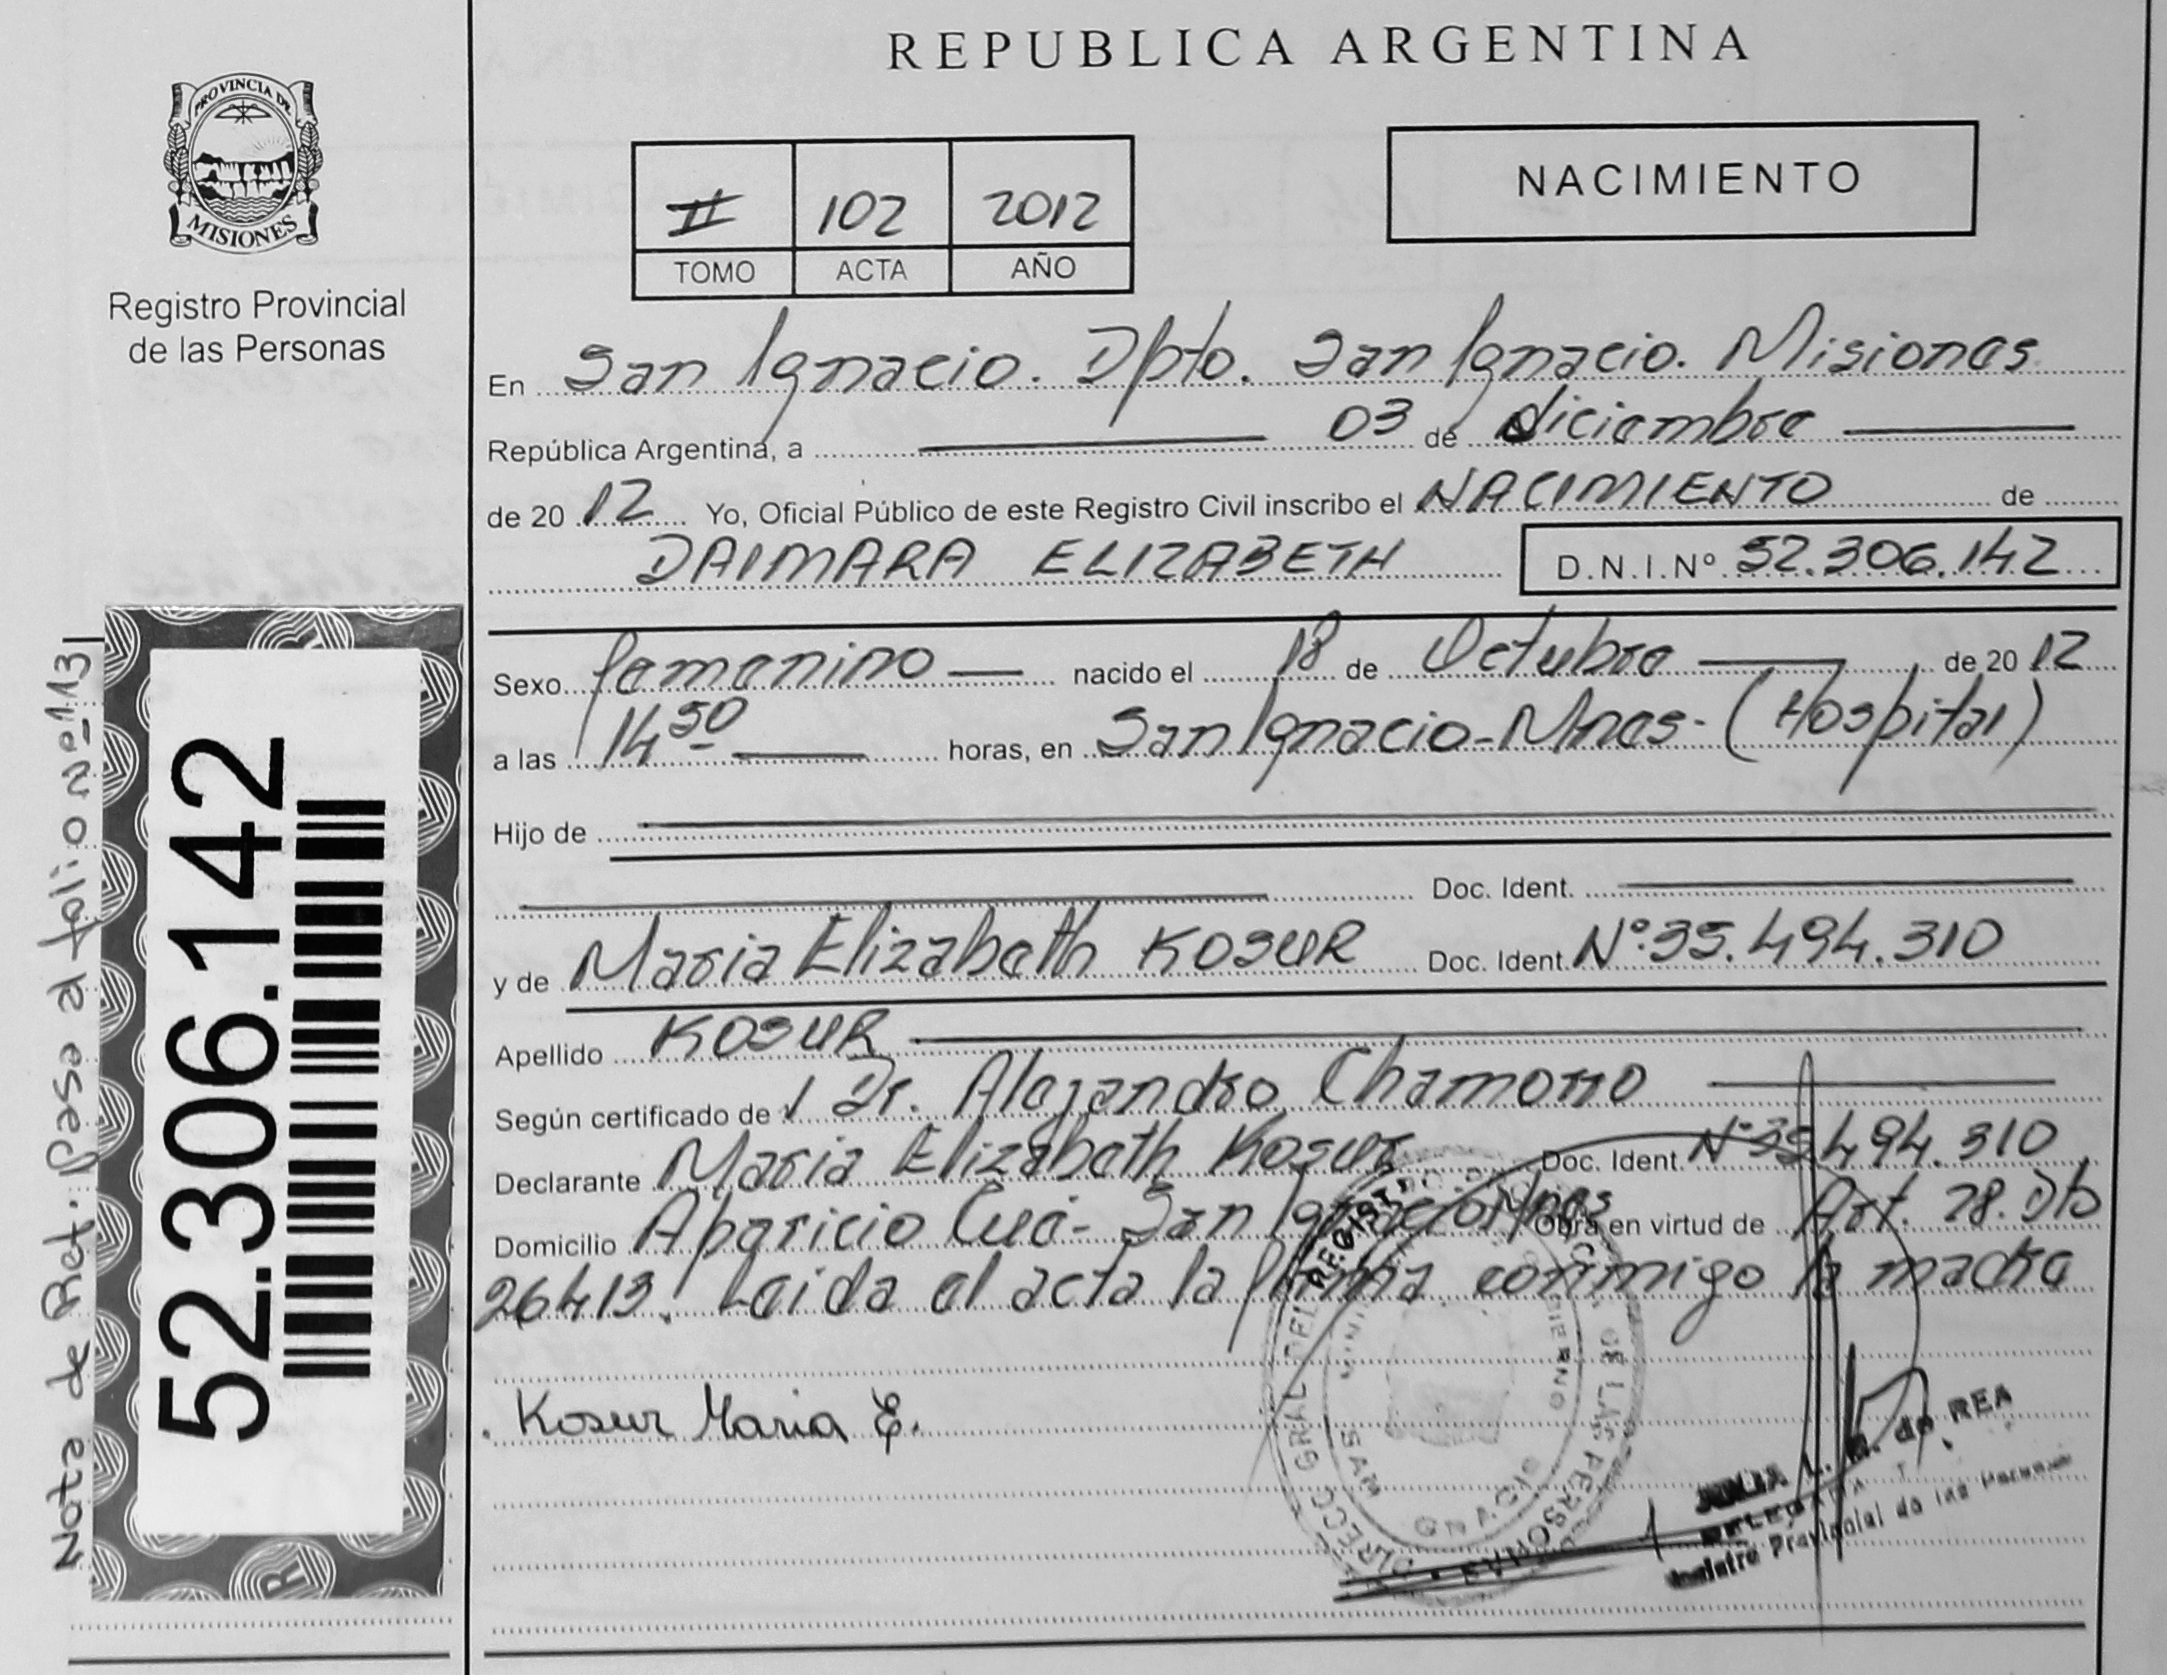 REPUBLICA ARGENTINA
PROVINCIA DE
MISIONES
Registro Provincial
de las Personas
II 102 2012
TOMO ACTA AÑO
NACIMIENTO
En San Ignacio. Dpto. San Ignacio. Misiones
República Argentina, a 03 de diciembre
de 2012 Yo, Oficial Público de este Registro Civil inscribo el NACIMIENTO de
DAIMARA ELIZABETH D.N.I.Nº 52.306.142
Sexo femenino nacido el 18 de Octubre de 2012
a las 14 50 horas, en San Ignacio-Mnes-(Hospital)
Hijo de
Doc. Ident.
y de Maria Elizabeth KOSUR Doc. Ident. Nº.35.494.310
Apellido KOSUR
Según certificado de Dr. Alejandro Chamorro
Declarante Maria Elizabeth Kosur Doc. Ident. Nº35.494.310
Domicilio Aparicio Cué- San Ignacio Mnes Obra en virtud de Art. 28. Dto
26413. Leida el acta la firma conmigo la madre
Kosur Maria E.
DIRECC GRAL DEL REGISTRO DE LAS PERSONAS
L. M. de REA
DELEGADA
Registro Provincial de las Personas
52.306.142
Nota de Ref. Pasa al folio Nº 113